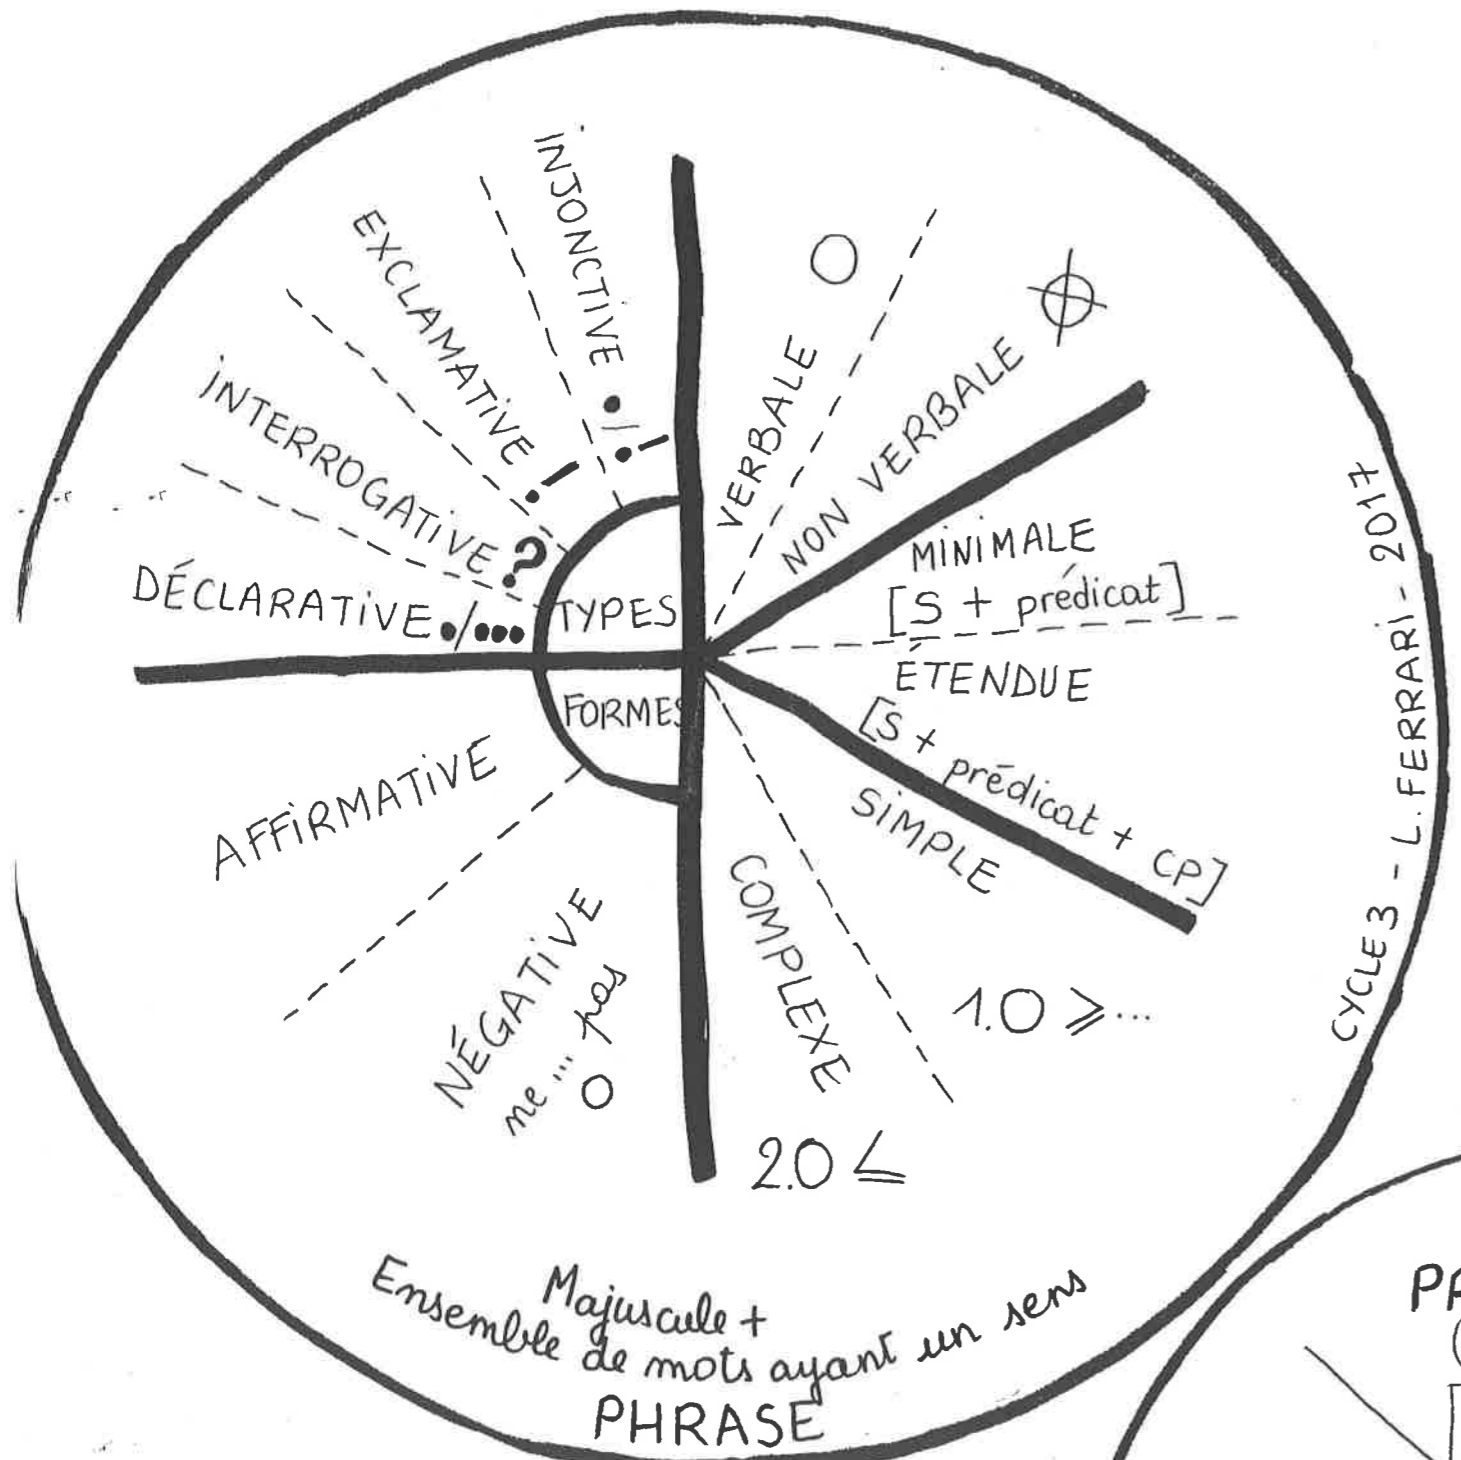 INJONCTIVE ./!
EXCLAMATIVE !
INTERROGATIVE ?
DÉCLARATIVE ./...
TYPES
FORMES
AFFIRMATIVE
NÉGATIVE
ne ... pas
O
VERBALE O
NON VERBALE
MINIMALE
[S + prédicat]
ÉTENDUE
[S + prédicat + CP]
SIMPLE
1.O ⩾...
COMPLEXE
2.O ≤
CYCLE 3 - L. FERRARI - 2017
Majuscule +
Ensemble de mots ayant un sens
PHRASE